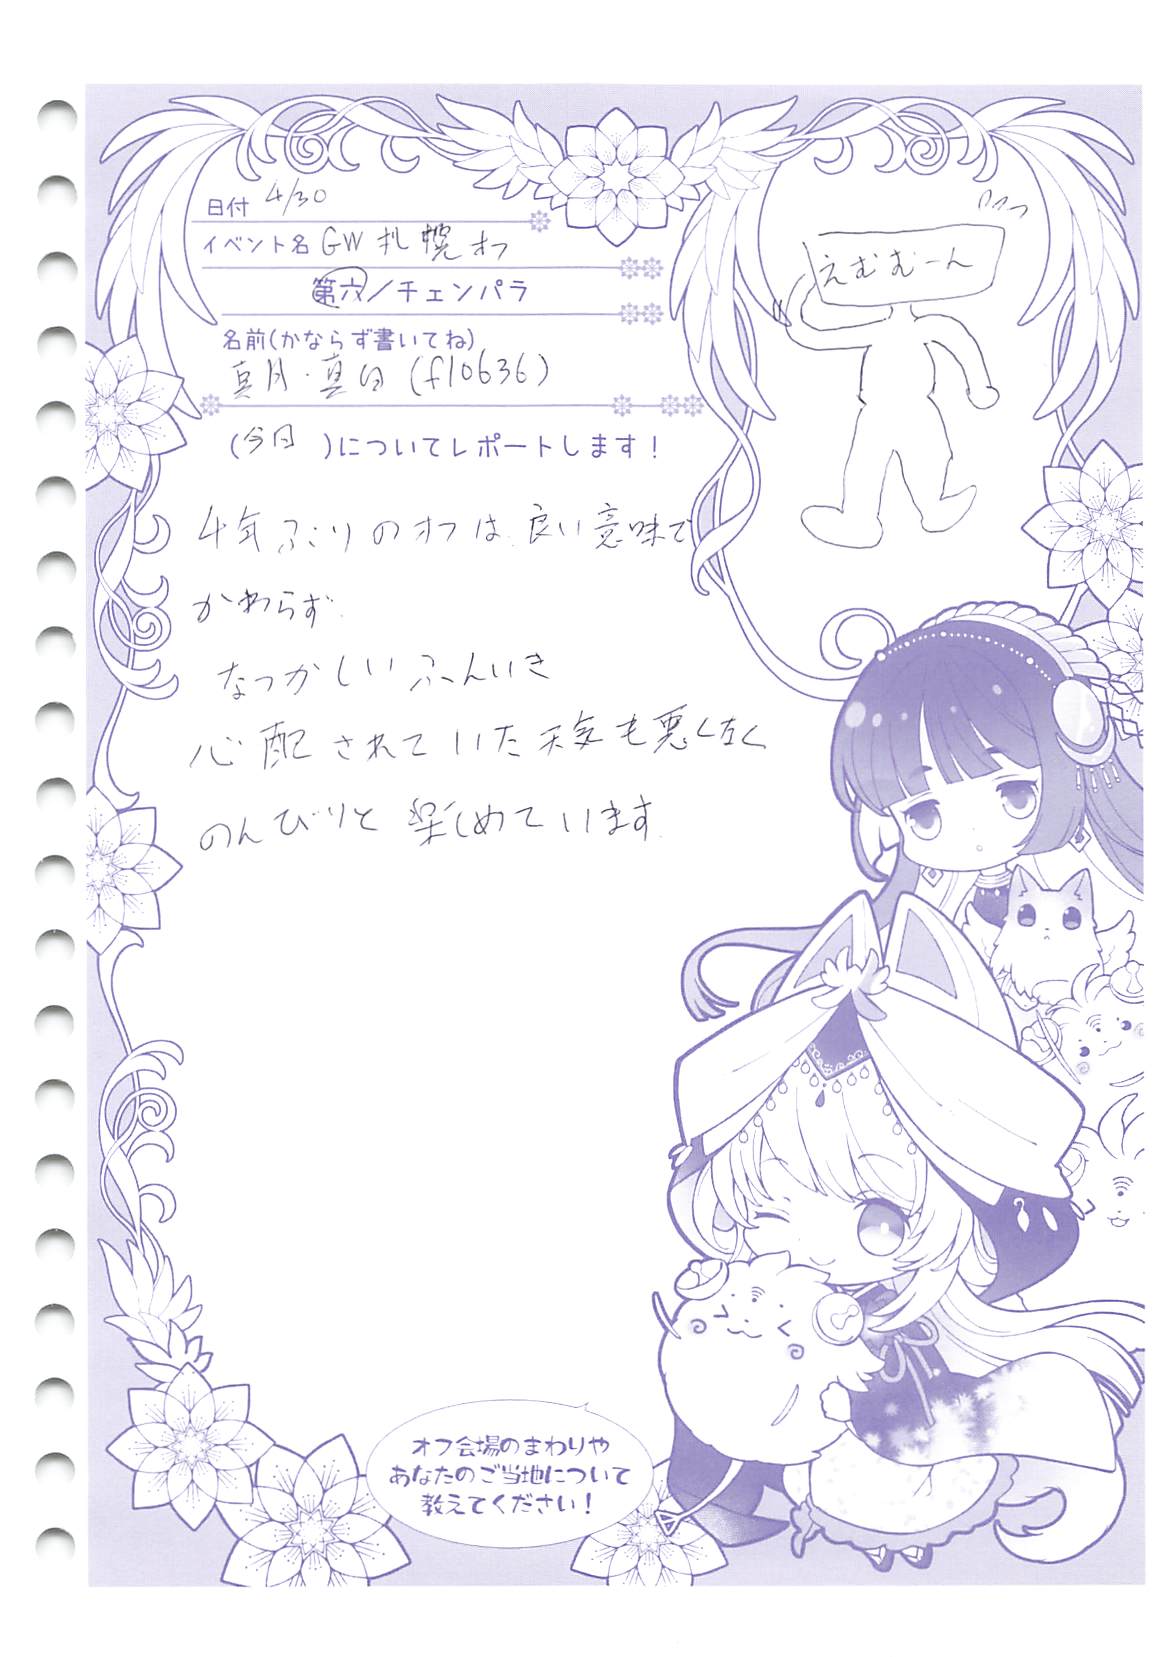 日付 4/30
イベント名 GW 札幌 オフ
第六/チェンパラ
名前(かならず書いてね)
真月・真白 (f10636)
(今日 )についてレポートします!
えむむーん
4年ぶりのオフは、良い意味で
かわらず、
なつかしいふんいき
心配されていた天気も悪くなく
のんびりと楽しめています。
オフ会場のまわりや
あなたのご当地について
教えてください!